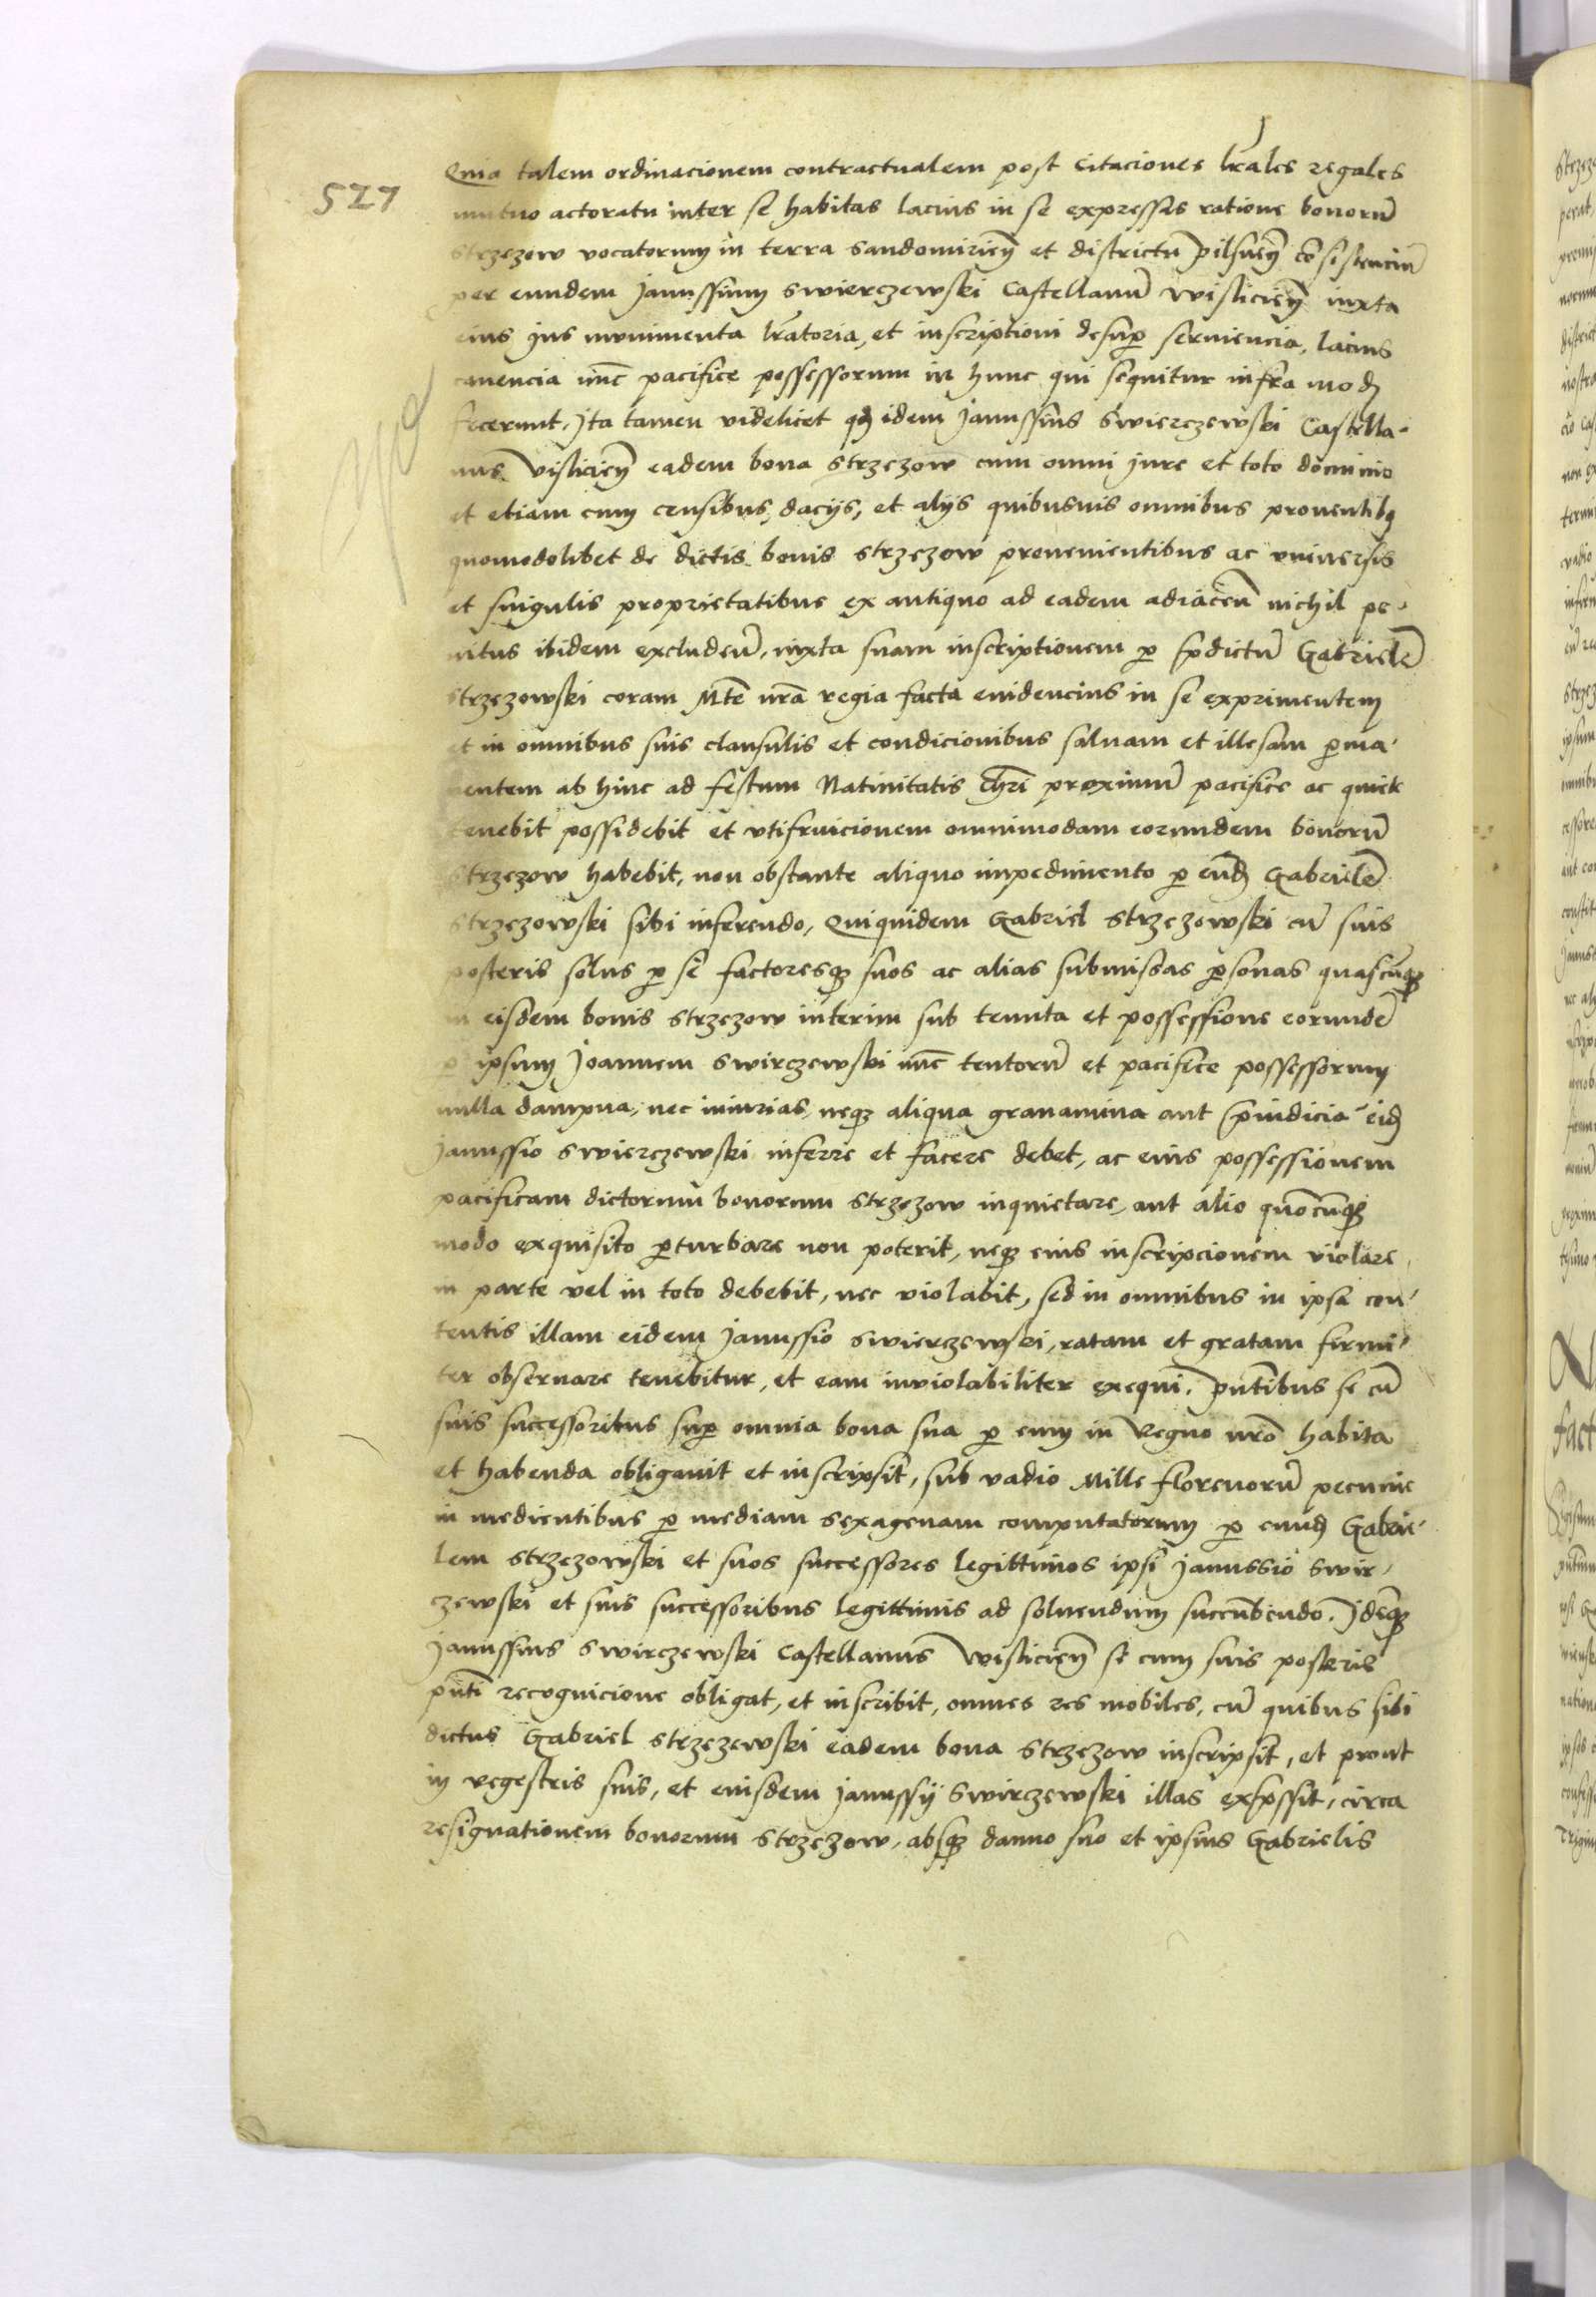 527
Quia talem ordinacionem contractualem post citaciones lrales regales
mutuo actoratu inter se habitas lacius in se expressis ratione bonorū
Strzezow vocatorum in terra Sandomirieñ et districtu pilsneñ cōsistenciū
per eundem Janussium Swierczewski Castellanū Wislicieñ iuxta
eius jus munimenta lratoria, et inscriptioni desup serviencia, lacius
canencia nūc pacifice possessorum in hunc qui sequitur infra mod
fecerunt. Ita tamen videlicet qd idem Janussius Swierczewski Castella-
nus Vislicieñ eadem bona Strzezow cum omni jure et toto dominio
et etiam cum censibus, dacijs, et alijs quibusvis omnibus proventibq
quomodolibet de dictis bonis Strzezow provenientibus ac vniversis
et singulis proprietatibus ex antiquo ad eadem adiaceñ nichil pe-
nitus ibidem excludeñ, iuxta suam inscriptionem p pdictū Gabrielē
Strzezowski coram Mte nra regia facta evidencius in se exprimentem
et in omnibus suis clausulis et condicionibus salvam et illesam pma-
nentem ab hinc ad festum Nativitatis Chri proximū pacifice ac quiete
tenebit possidebit et vtifruicionem omnimodam eorundem bonorū
Strzezow habebit, non obstante aliquo impedimento p eund Gabrielē
Strzezowski sibi inferendo, Quiquidem Gabriel Strzezowski cū suis
posteris solus p se factoresq suos ac alias submissas psonas quascūq
in eisdem bonis Strzezow interim sub tenuta et possessione eorundē
p ipsum Joannem Swirczewski nūc tentorū et pacifice possessorum
nulla dampna, nec iniurias, neq aliqua gravamina aut pindicia eid
Janussio Swierczewski inferre et facere debet, ac eius possessionem
pacificam dictorum bonorum Strzezow inquietare, aut alio quocūq
modo exquisito pturbare non poterit, neq eius inscripcionem violare
in parte vel in toto debebit, nec violabit, sed in omnibus in ipsa con-
tentis illam eidem Janussio Swierczewski, ratam et gratam firmi-
ter observare tenebitur, et eam inviolabiliter exequi. pntibus se cū
suis successoribus sup omnia bona sua p eum in Regno nro habita
et habenda obligavit et inscripsit, sub vadio Mille florenorū pecunie
in medientibus p mediam sexagenam computatorum p eund Gabrie-
lem Strzezowski et suos successores legittimos ipsi Janussio Swir-
czewski et suis successoribus legittimis ad solvendum succūbendo. Ideq
Janussius Swirczewski Castellanus Wislicieñ se cum suis posteris
pnti recognicione obligat, et inscribit, omnes res mobiles, cū quibus sibi
dictus Gabriel Strzezewski eadem bona Strzezow inscripsit, et prout
in regestris suis, et eiusdem Janussij Swirczewski illas expssit, circa
resignationem bonorum Strzezow, absq danno suo et ipsius Gabrielis